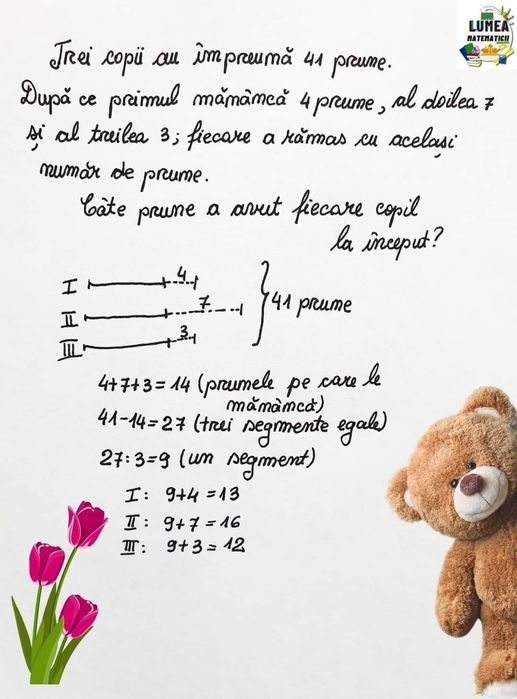 LUMEA
MATEMATICII
Trei copii au împreună 41 prune.
După ce primul mănâncă 4 prune, al doilea 7
și al treilea 3; fiecare a rămas cu același
număr de prune.
Câte prune a avut fiecare copil
la început?
I 4
II 7 41 prune
III 3
4+7+3=14 (prunele pe care le
mănâncă)
41-14=27 (trei segmente egale)
27:3=9 (un segment)
I: 9+4=13
II: 9+7=16
III: 9+3=12